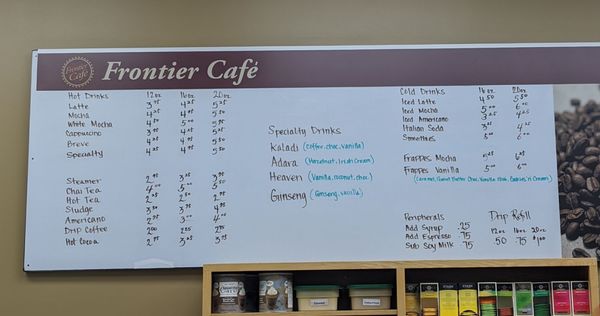 Frontier Café
Frontier Café
Hot Drinks 12oz 16oz 20oz
Latte 3.75 4.25 5.25
Mocha 4.25 4.75 5.50
White Mocha 4.50 5.00
Cappucino 3.75 4.25 5.25
Breve 4.25 4.75 5.50
Specialty 4.25 4.75 5.50
Steamer 2.75 3.25 3.75
Chai Tea 4.00 5.00
Hot Tea 2.25 2.50
Sludge 3.50 3.75
Americano 2.75 3.00 4.00
Drip Coffee 2.00 2.25
Hot Cocoa 2.75 3.25 3.75
Specialty Drinks
Kaladi (coffee, choc, vanilla)
Adara (Hazelnut, Irish Cream)
Heaven (Vanilla, coconut, choc.)
Ginseng (Ginseng, vanilla)
Cold Drinks 16oz 20oz
Iced Latte 4.50 5.50
Iced Mocha 5.00 6.00
Iced Americano 3.25 4.25
Italian Soda
Smoothies
Frappes Mocha 5.25 6.25
Frappes Vanilla 5.00 6.00
(Caramel, Peanut Butter Choc, Vanilla Chai, Cookies n' Cream)
Peripherals Drip Refill
Add Syrup .25 12oz 16oz 20oz
Add Espresso .75 .50 .75 $1.00
Sub Soy Milk .75